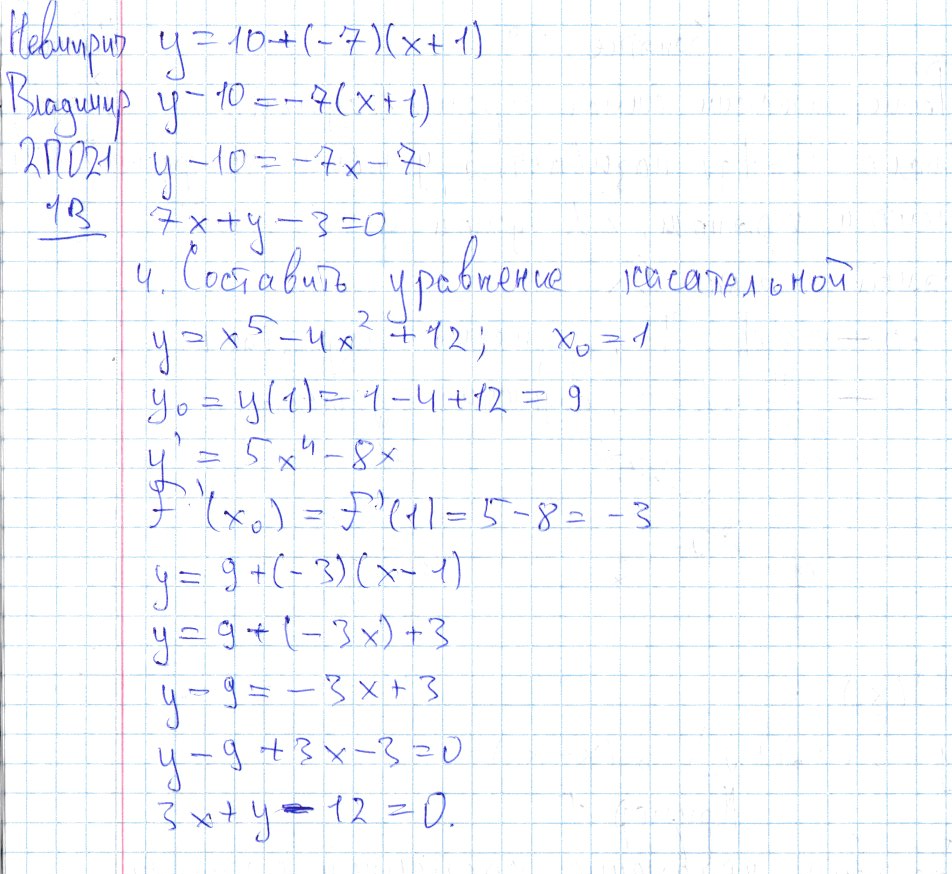 Невмирич y = 10 + (-7)(x+1)
Владимир y - 10 = -7(x+1)
2ПО21 y - 10 = -7x - 7
1В 7x + y - 3 = 0
4. Составить уравнение касательной
y = x⁵ - 4x² + 12; x₀ = 1
y₀ = y(1) = 1 - 4 + 12 = 9
y' = 5x⁴ - 8x
F'(x₀) = F'(1) = 5 - 8 = -3
y = 9 + (-3)(x - 1)
y = 9 + (-3x) + 3
y - 9 = -3x + 3
y - 9 + 3x - 3 = 0
3x + y - 12 = 0.